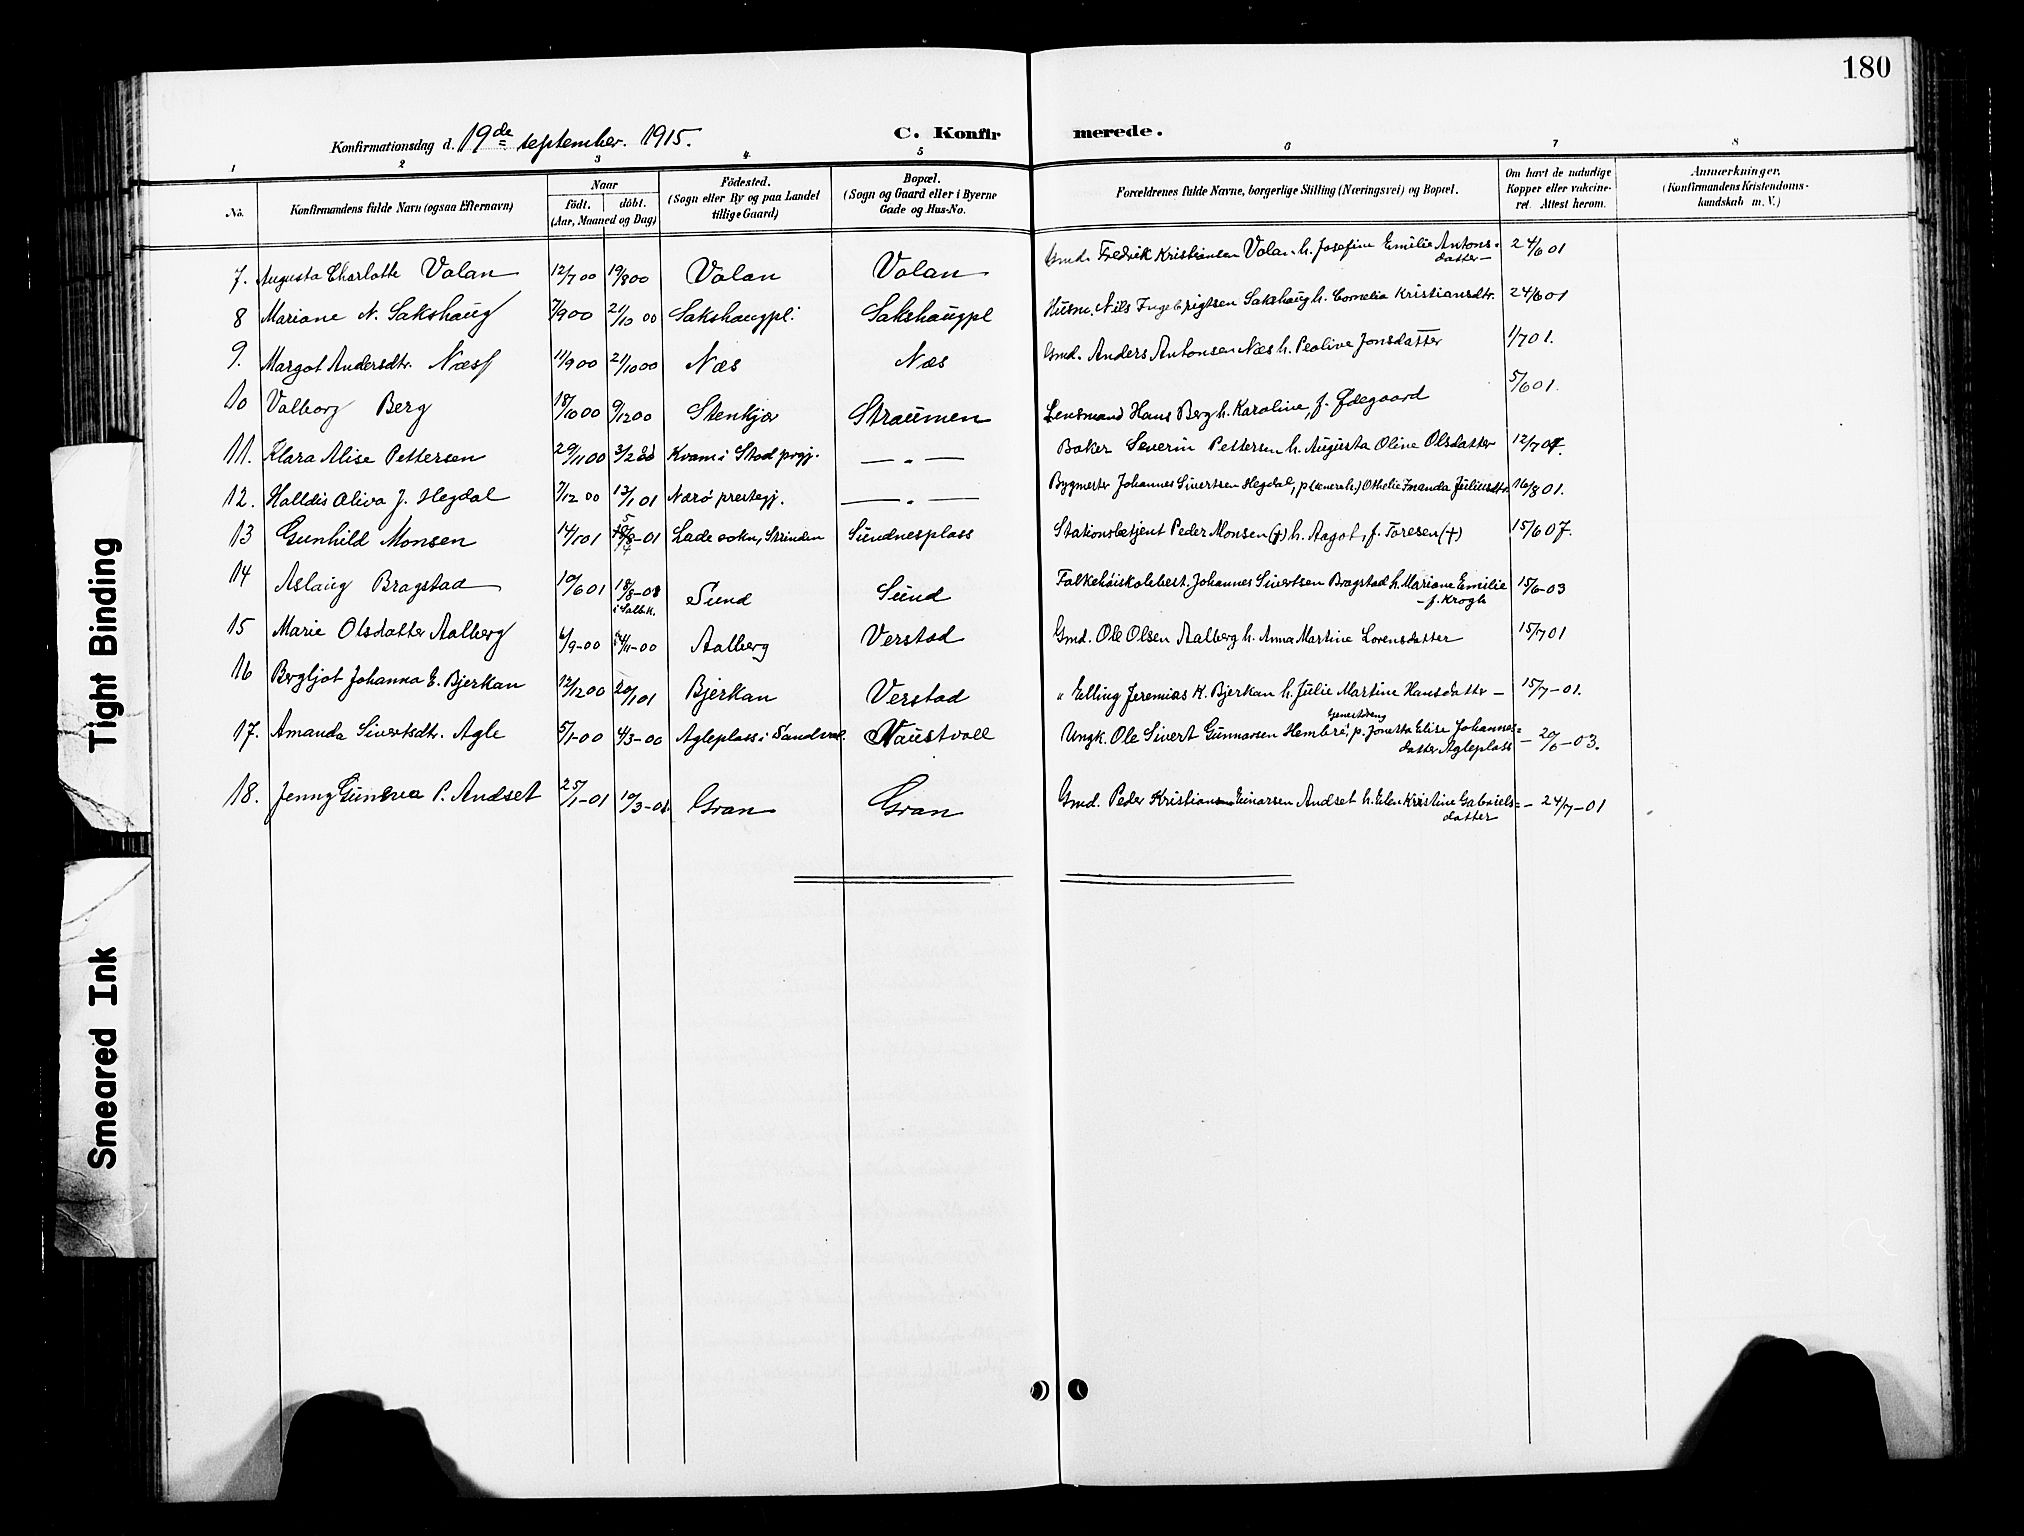 180
Konfirmationsdag d. 19de september. 1915.
C. Konfirmerede.
1 2 3 4 5 6 7 8
No.
Konfirmandens fulde Navn (ogsaa Efternavn)
Naar
födt. döbt.
(Aar, Maaned og Dag)
Födested.
(Sogn eller By og paa Landet
tillige Gaard)
Bopæl.
(Sogn og Gaard eller i Byerne
Gade og Hus-No.
Forældrenes fulde Navne, borgerlige Stilling (Næringsvei) og Bopæl.
Om havt de naturlige
Kopper eller vaksine-
ret. Attest herom.
Anmærkninger.
(Konfirmandens Kristendoms-
kundskab m. V.)
7. Augusta Charlotte Volan 12/7 00 19/8 00 Volan Volan Gmd. Fredrik Kristiansen Volan h. Josefine Emilie Antons-
datter 24/6 01
8 Mariane N. Sakshaug 7/9 00 21/10 00 Sakshaugpl. Sakshaugpl Husm. Nils Ingebrigtsen Sakshaug h. Cornelia Kristiansdtr. 24/6 01
9. Margot Andersdtr. Næss 11/9 00 21/10 00 Næs Næs Gmd. Anders Antonsen Næs h. Peoline Jonsdatter 1/7 01.
10 Valborg Berg 18/10 00 9/12 00 Stenkjær Straumen Lensmand Hans Berg h. Karoline, f. Ødegaard 5/6 01.
11. Klara Alise Pettersen 29/11 00 Kvam i Stod prgj. — „ — Baker Severin Pettersen h. Augusta Oline Olsdatter 12/7 07.
12. Halldis Oliva J. Hegdal 7/12 00 13/1 01 Nærø prestegj. — „ — Bygmester Johannes Sivertsen Hegdal, p (senere h.) Othelie Amanda Juliusdtr. 16/8 01.
13 Gunhild Monsen 14/1 01 Lade sokn, Strinden Sundnesplass Stationsbetjent Peder Monsen (†) h. Aagot, f. Toresen (†) 15/6 07.
14 Aslaug Bragstad 10/6 01 18/8-01
i Salb.k. Sund Sund Folkehøiskolebest. Johannes Sivertsen Bragstad h. Mariane Emilie
f. Krogh 15/6-03
15 Marie Olsdatter Aalberg 6/9-00 4/11-00 Aalberg Verstad Gmd. Ole Olsen Aalberg h. Anna Martine Lorensdatter 15/7 01
16 Bergljot Johanna E. Bjerkan 12/12 00 20/1 01 Bjerkan Verstad „ Elling Jeremias K. Bjerkan h. Julie Martine Hansdatter — 15/7-01.
17. Amanda Sivertsdtr. Agle 5/1-00 4/3-00 Agleplass i Sandvol. Naustvoll Ungk. Ole Sivert Gunnarsen Hembre, p. Jonetta Elise Johannes=
datter Agleplass — 20/6-03.
18. Jenny Guneva P. Andset 25/1-01 10/3-01 Gran Gran Gmd. Peder Kristian Einarsen Andset h. Elen Kristine Gabriels=
datter — 24/7-01
Tight Binding
Smeared Ink